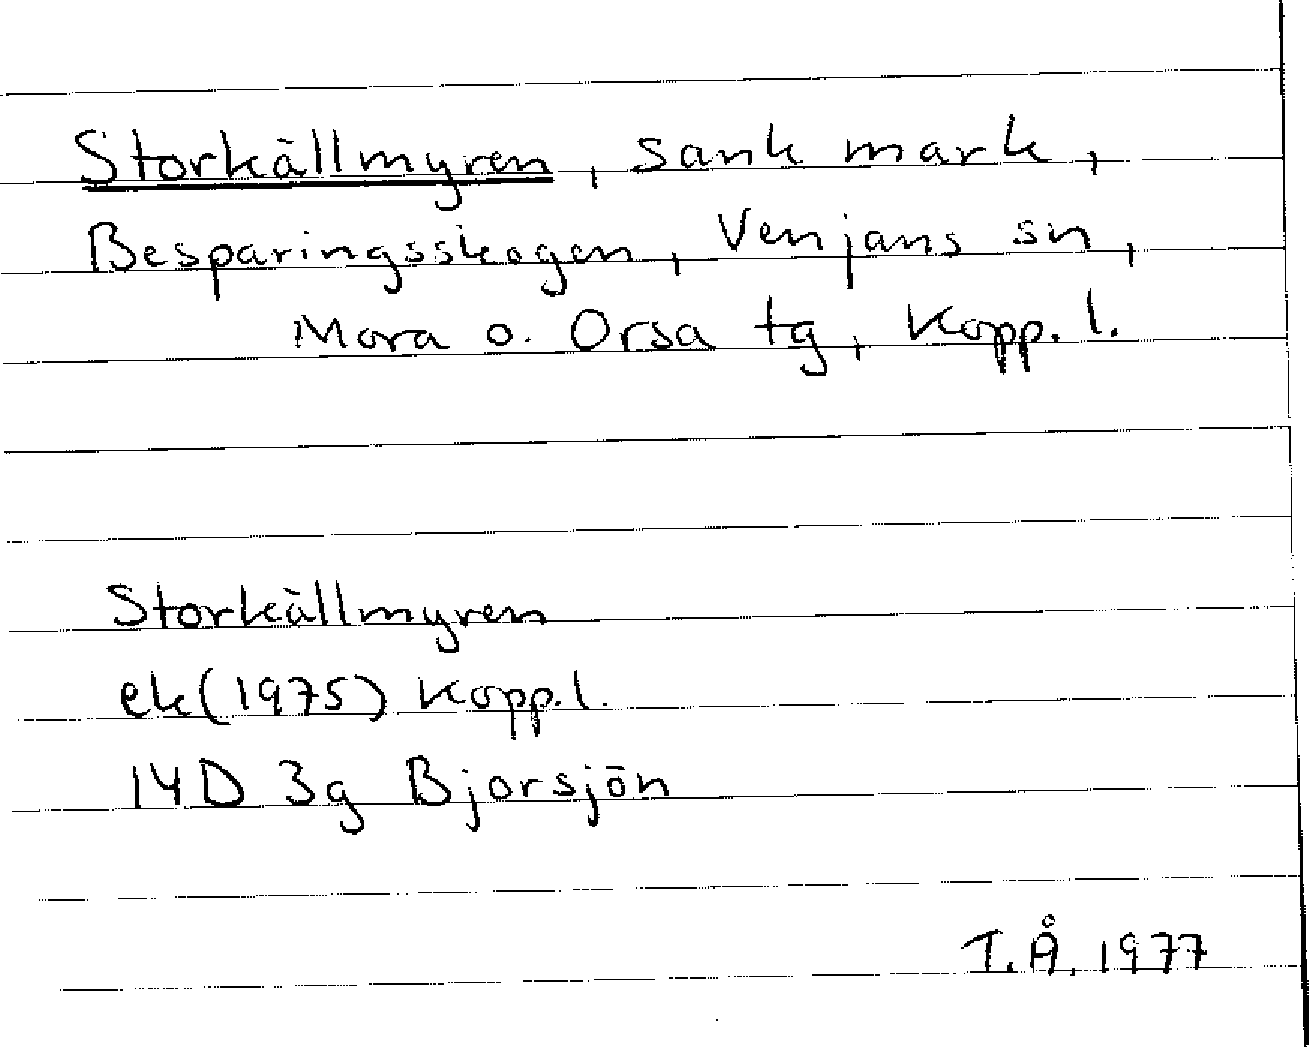 Storkällmyren, sank mark,
Besparingsskogen, Venjans sn,
Mora o. Orsa tg, Kopp. l.
Storkällmyren
ek(1975) Kopp.l.
14D 3g Bjorsjön
T.Å. 1977